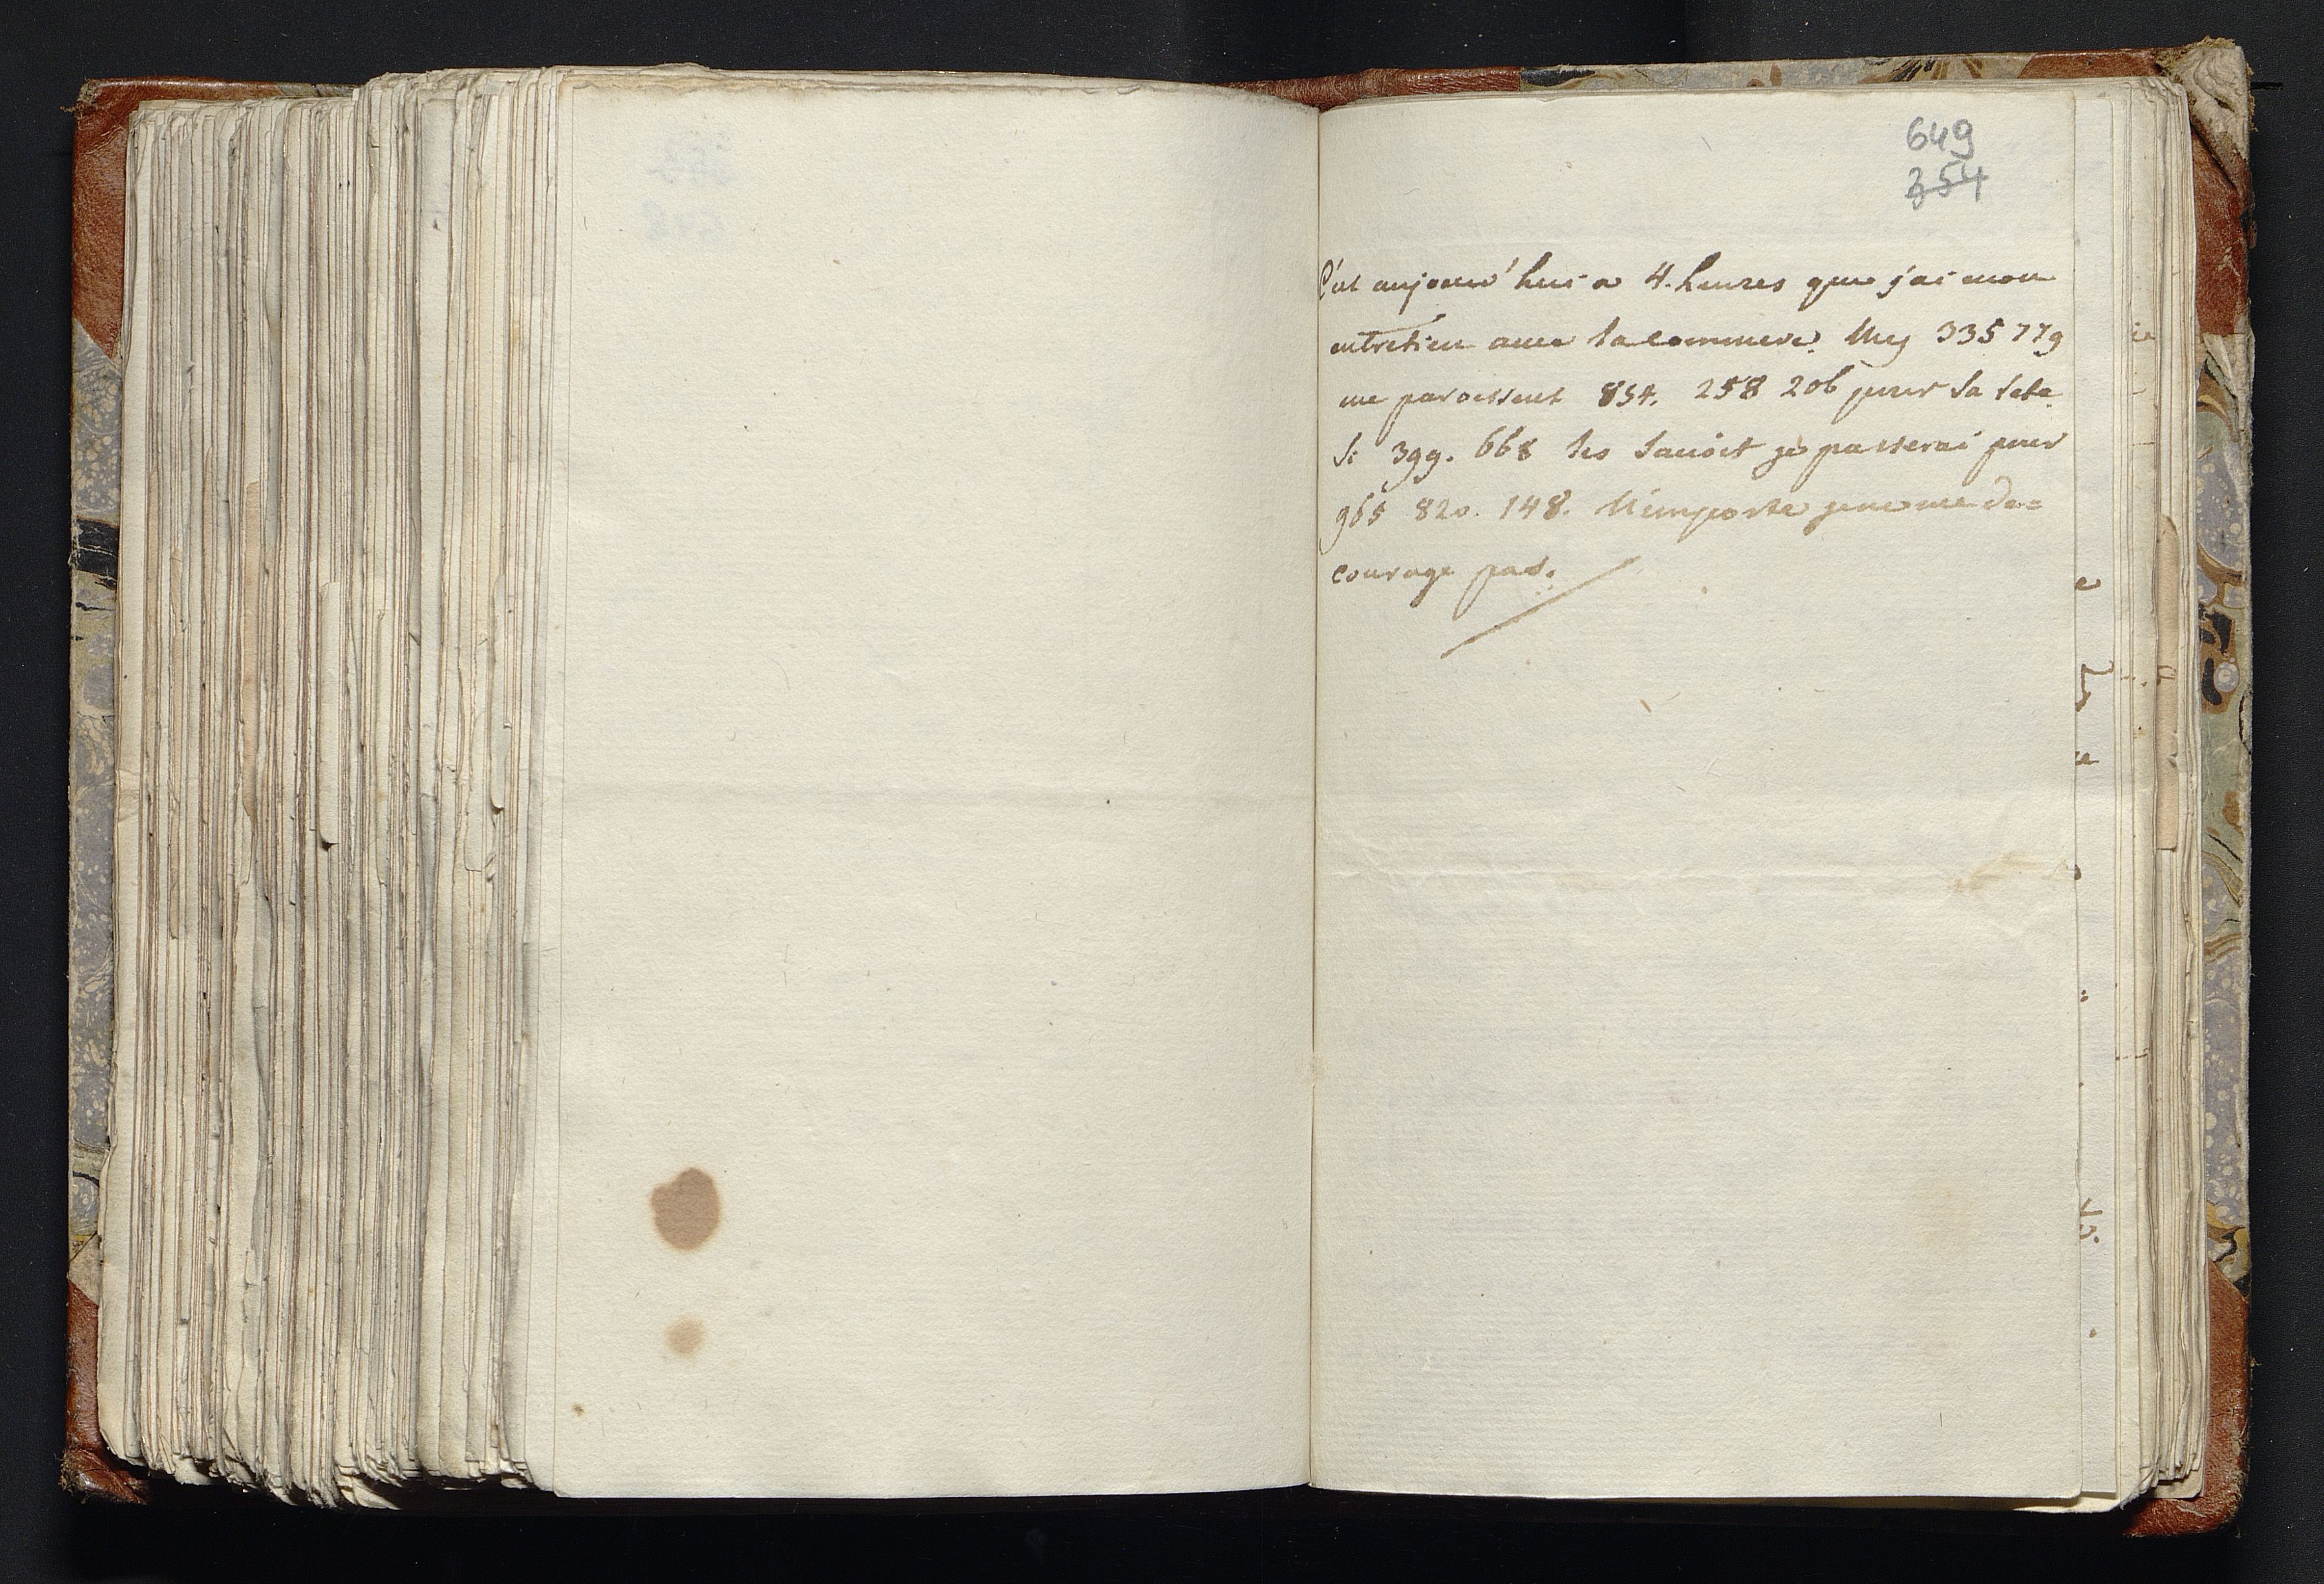 649
354
C'est aujourd'hui a 4. heures que j'ai mon
entretien avec la commere. Mes 335 779
me paroissent 854. 258 206 pour sa tete.
Si 399. 668 les savoit je passerai pour
965 820. 148. N'importe je ne me de=
courage pas.